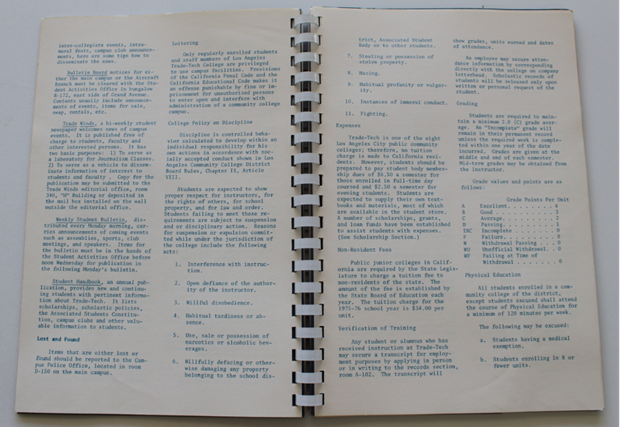 inter-collegiate events, intra-
mural feats, campus club announce-
ments, here are some tips how to
disseminate the news.
Bulletin Board notices for ei-
ther the main campus or the Aircraft
Branch must be cleared with the Stu-
dent Activities Office in bungalow
B-172, east side of Grand Avenue.
Contents usually include announce-
ments of events, items for sale,
swap, rentals, etc.
Trade Winds, a bi-weekly student
newspaper welcomes news of campus
events. It is published free of
charge to students, faculty and
other interested persons. It has
two basic purposes: 1) To serve as
a laboratory for Journalism classes.
2) To serve as a vehicle to dissem-
inate information of interest to
students and faculty. Copy for the
publication may be submitted to the
Trade Winds editorial office, room
Building or deposited in
the mail box installed on the wall
outside the editorial office.
Weekly Student Bulletin, dis-
tributed every Monday morning, car-
ries announcements of coming events
such as assemblies, sports, club
meetings, and speakers. Items for
the bulletin must be in the hands of
the Student Activities Office before
noon Wednesday for publication in
the following Monday's bulletin.
Student Handbook, an annual pub-
lication, provides new and continu-
ing students with pertinent informa-
tion about Trade-Tech. It lists
scholarships, scholastic policies,
the Associated Students Constitu-
tion, campus clubs and other valu-
able information to students.
Lost and Found
Items that are either lost or
found should be reported to the Cam-
pus Police Office, located in room
D-150 on the main campus.
Loitering
Only regularly enrolled students
and staff members of Los Angeles
Trade-Tech College are privileged
to use campus facilities. Provisions
of the California Penal Code and the
California Educational Code makes it
an offense punishable by fine or im-
prisonment for unauthorized persons
to enter upon and interfere with
administration of a community college
campus.
College Policy on Discipline
Discipline is controlled behav-
ior calculated to develop within an
individual responsibility for his
own actions in accordance with soc-
ially accepted conduct shown in Los
Angeles Community College District
Board Rules, Chapter IX, Article
VIII.
Students are expected to show
proper respect for instructors, for
the rights of others, for school
property, and for law and order.
Students failing to meet those re-
quirements are subject to suspension
and/or disciplinary action. Reasons
for suspension or expulsion commit-
ted while under the jurisdiction of
the college include the following
acts:
1. Interference with instruc-
tion.
2. Open defiance of the author-
ity of the instructor.
3. Willful disobedience.
4. Habitual tardiness or ab-
sence.
5. Use, sale or possession of
narcotics or alcoholic bev-
erages.
6. Willfully defacing or other-
wise damaging any property
belonging to the school dis-
trict, Associated Student
Body or to other students.
7. Stealing or possession of
stolen property.
8. Hazing.
9. Habitual profanity or vulgar-
ity.
10. Instances of immoral conduct.
11. Fighting.
Expenses
Trade-Tech is one of the eight
Los Angeles City public community
colleges; therefore, no tuition
charge is made to California resi-
dents. However, students should be
prepared to pay student body member-
ship dues of $5.50 a semester for
those enrolled in full-time day
courses and $2.50 a semester for
evening students. Students are
expected to supply their own text-
books and materials, most of which
are available in the student store.
A number of scholarships, grants,
and loan funds have been established
to assist students with expenses.
(See Scholarship Section.)
Non-Resident Fees
Public junior colleges in Calif-
ornia are required by the State legis-
lature to charge a tuition fee to
non-residents of the state. The
amount of the fee is established by
the State Board of Education each
year. The tuition charge for the
1975-76 school year is $34.00 per
unit.
Verification of Training
Any student or alumnus who has
received instruction at Trade-Tech
may secure a transcript for employ-
ment purposes by applying in person
or in writing to the records section,
room A-102. The transcript will
show grades, units earned and dates
of attendance.
An employer may secure atten-
dance information by corresponding
directly with the college on company
letterhead. Scholastic records of
students will be released only upon
written or personal request of the
student.
Grading
Students are required to main-
tain a minimum 2.0 (C) grade aver-
age. No "Incomplete" grade will
remain in their permanent record
unless the required work is comple-
ted within one year of the date
incurred. Grades are given at the
middle and end of each semester.
Mid-term grades may be obtained from
the instructor.
Grade values and points are as
follows:
Grade Points Per Unit
A Excellent . . . . . . . . 4
B Good . . . . . . . . . . 3
C Average . . . . . . . . . 2
D Passing . . . . . . . . . 1
INC Incomplete . . . . . . . 0
F Failure . . . . . . . . . 0
W Withdrawal Passing . . . 0
WU Unofficial Withdrawal . . 0
WF Failing at Time of
Withdrawal . . . . . . . 0
Physical Education
All students enrolled in a com-
munity college of the district,
except students excused shall attend
the course of Physical Education for
a minimum of 120 minutes per week.
The following may be excused:
a. Students having a medical
exemption.
b. Students enrolling in 8 or
fewer units.